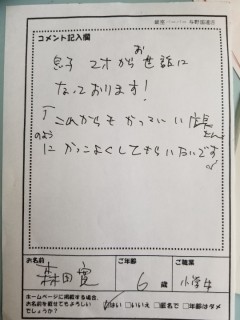 コメント記入欄
息子 2才から お世話に
なっております!
「これからも かっこいい 店長さん
のよう
に かっこよくしてもらいたいです」
お名前
ご年齢
ご職業
森田寛
6歳
小学生
ホームページに掲載する場合、
お名前を載せてもよろしい
でしょうか?
はい □いいえ □匿名で □年齢はダメ